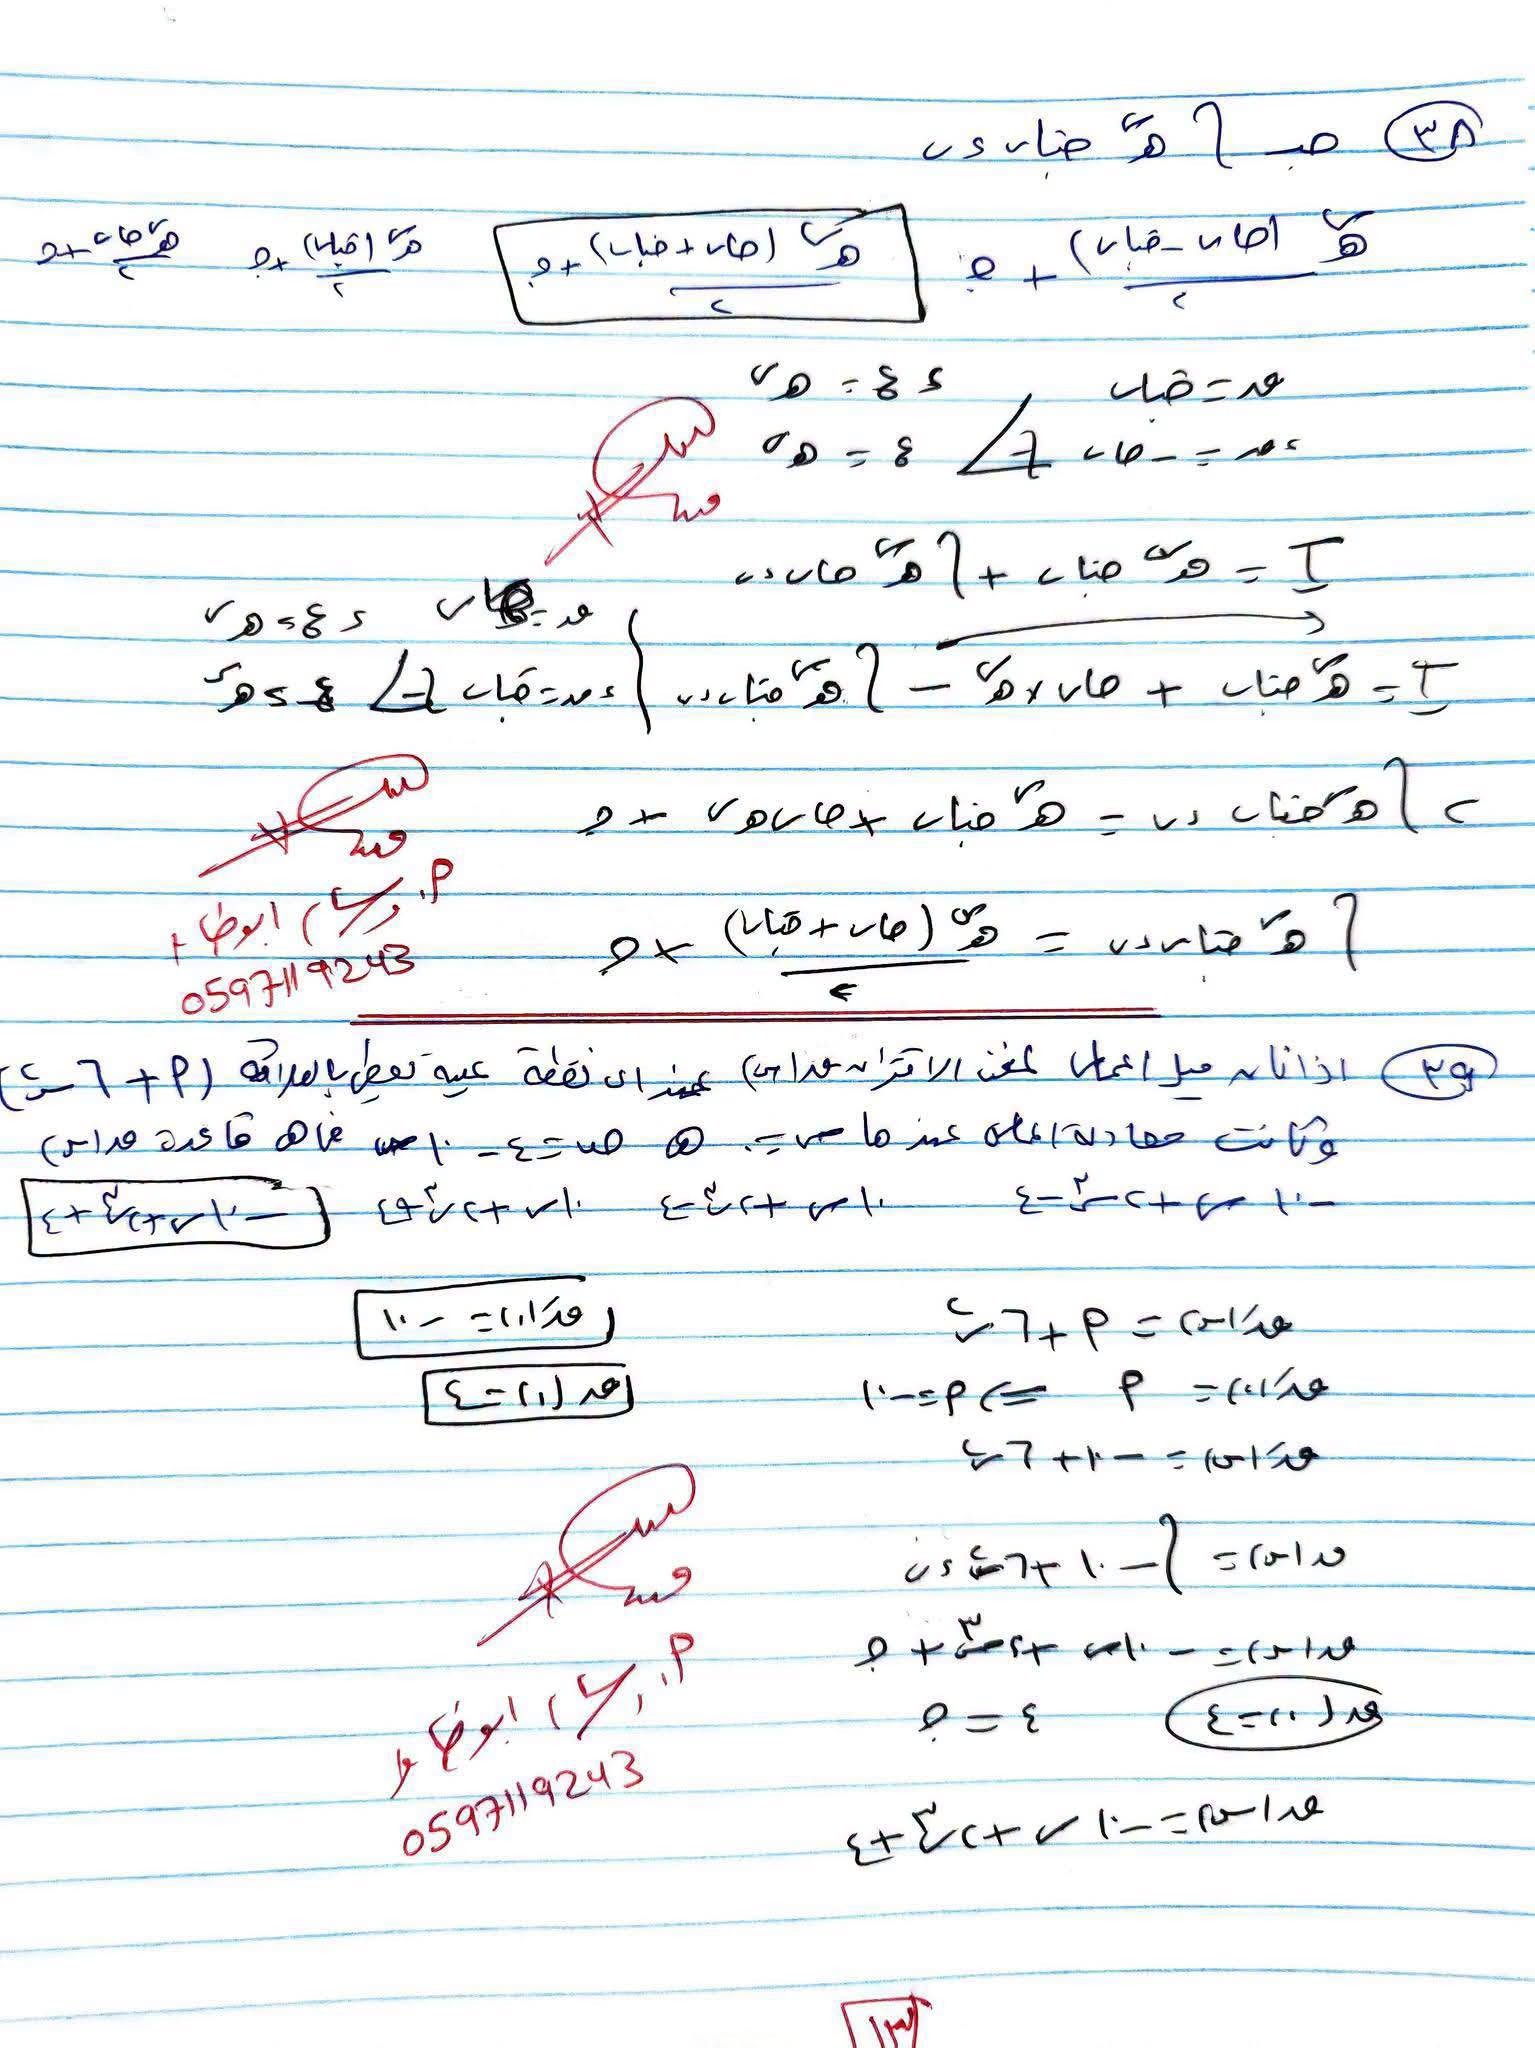 ٣٨ جد ∫ هـ^س جتاس دس
هـ^س (جاس - جتاس)/٢ + جـ    هـ^س (جاس + جتاس)/٢ + جـ    هـ^س (جتاس)/٢ + جـ    هـ^س جاس/٢ + جـ
ق = جتاس    دع = هـ^س
دق = -جاس    ع = هـ^س
I = هـ^س جتاس + ∫ هـ^س جاس دس
ق = جاس    دع = هـ^س
I = هـ^س جتاس + جاس × هـ^س - ∫ هـ^س جتاس دس    دق = جتاس    ع = هـ^س
٢ ∫ هـ^س جتاس دس = هـ^س جتاس + جاس هـ^س + جـ
∫ هـ^س جتاس دس = هـ^س (جاس + جتاس)/٢ + جـ
0597119243
٣٩ اذا كان ميل المماس لمنحنى الاقتران ق(س) عند اي نقطة عليه تعطى بالعلاقة (م + ٦س^٢)
وكانت معادلة المماس عند ما س = ٠ هي ص = ٤ - ١٠س فما هي قاعدة ق(س)
-١٠س + ٢س^٣ - ٤    ١٠س + ٢س^٣ - ٤    ١٠س + ٢س^٣ + ٤    -١٠س + ٢س^٣ + ٤
قَ(س) = م + ٦س^٢    قَ(٠) = -١٠
قَ(٠) = م ⇒ م = -١٠    ق(٠) = ٤
قَ(س) = -١٠ + ٦س^٢
ق(س) = ∫ -١٠ + ٦س^٢ دس
ق(س) = -١٠س + ٢س^٣ + جـ
ق(٠) = ٤    ٤ = جـ
0597119243
ق(س) = -١٠س + ٢س^٣ + ٤
١٣